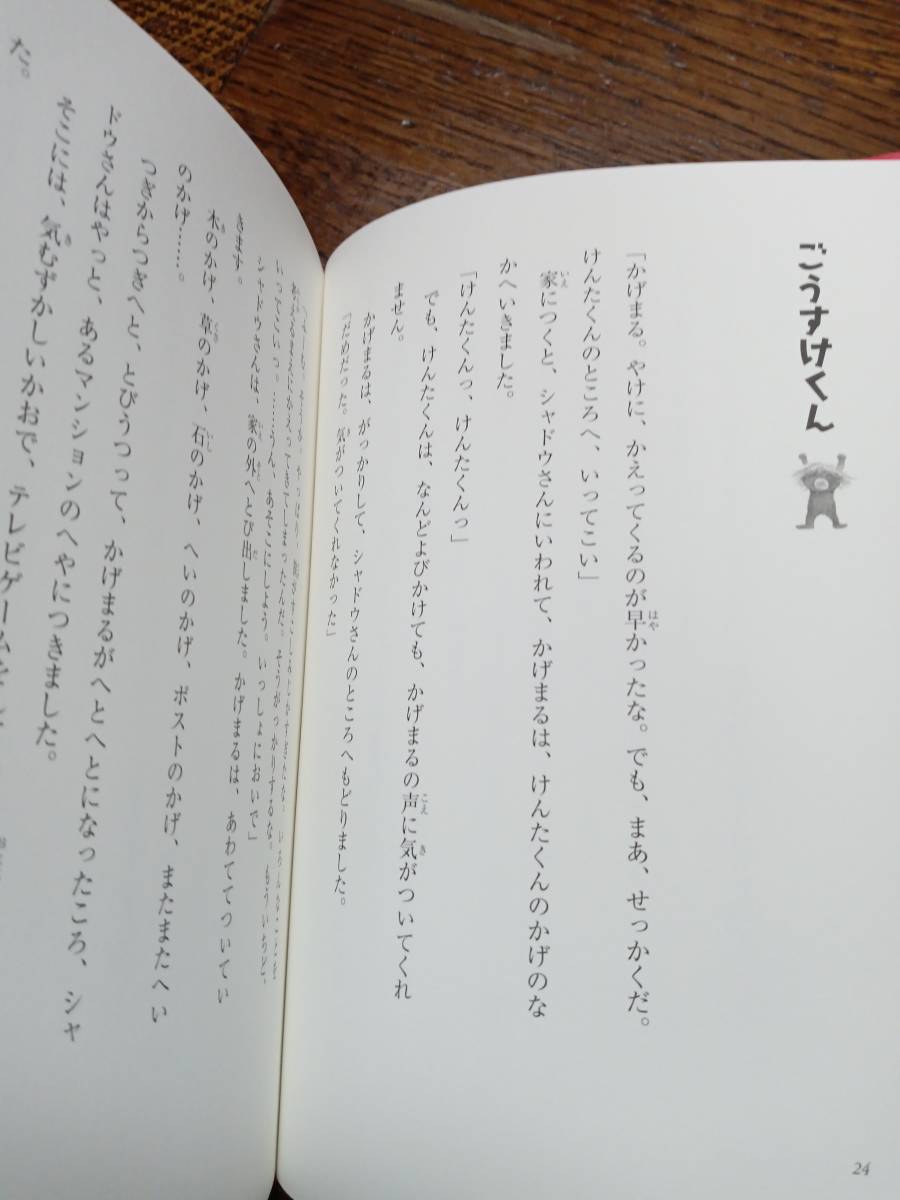 ごうすけくん
「かげまる。やけに、かえってくるのが早かったな。でも、まあ、せっかくだ。
けんたくんのところへ、いってこい」
家につくと、シャドウさんにいわれて、かげまるは、けんたくんのかげのな
かへいきました。
「けんたくんっ、けんたくんっ」
でも、けんたくんは、なんどよびかけても、かげまるの声に気がついてくれ
ません。
かげまるは、がっかりして、シャドウさんのところへもどりました。
「だめだった。気がついてくれなかった」
24
いってこいっ。……うん、あそこにしよう。いっしょにおいで」
シャドウさんは、家の外へとび出しました。かげまるは、あわててついてい
きます。
木のかげ、草のかげ、石のかげ、へいのかげ、ポストのかげ、またまたへい
のかげ……。
つぎからつぎへと、とびうつって、かげまるがへとへとになったころ、シャ
ドウさんはやっと、あるマンションのへやにつきました。
そこには、気むずかしいかおで、テレビゲーム
た。